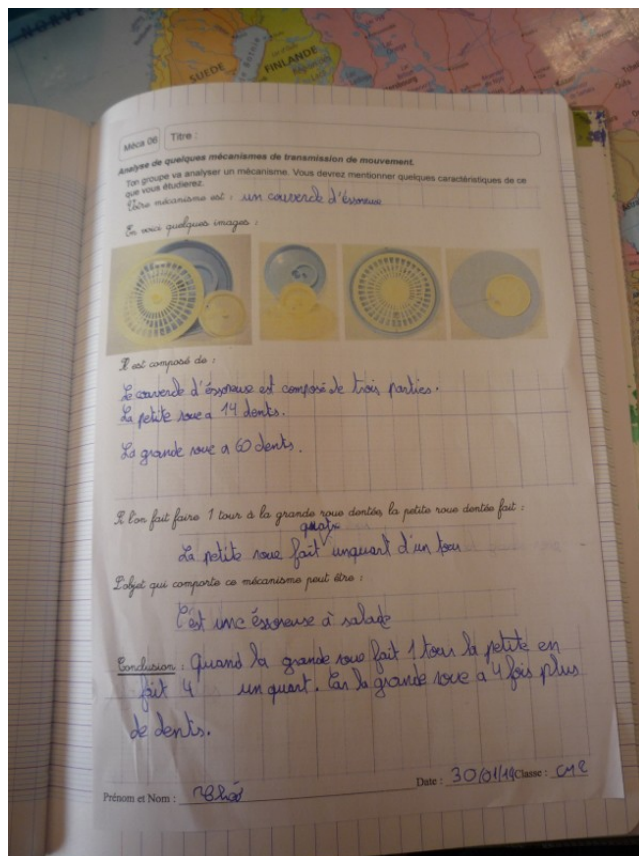 NORVEG
SUEDE
FINLANDE
Méca 06 Titre :
Analyse de quelques mécanismes de transmission de mouvement.
Ton groupe va analyser un mécanisme. Vous devrez mentionner quelques caractéristiques de ce
que vous étudierez.
Votre mécanisme est : un couvercle d'éssoreuse
En voici quelques images :
Il est composé de :
Le couvercle d'éssoreuse est composé de trois parties.
La petite roue a 14 dents.
La grande roue a 60 dents.
Si l'on fait faire 1 tour à la grande roue dentée, la petite roue dentée fait :
quatre
La petite roue fait unquart d'un tour
L'objet qui comporte ce mécanisme peut être :
C'est une éssoreuse à salade
Conclusion : Quand la grande roue fait 1 tour la petite en
fait 4 un quart. Car la grande roue a 4 fois plus
de dents.
Date : 30/01/14 Classe : CM2
Prénom et Nom :